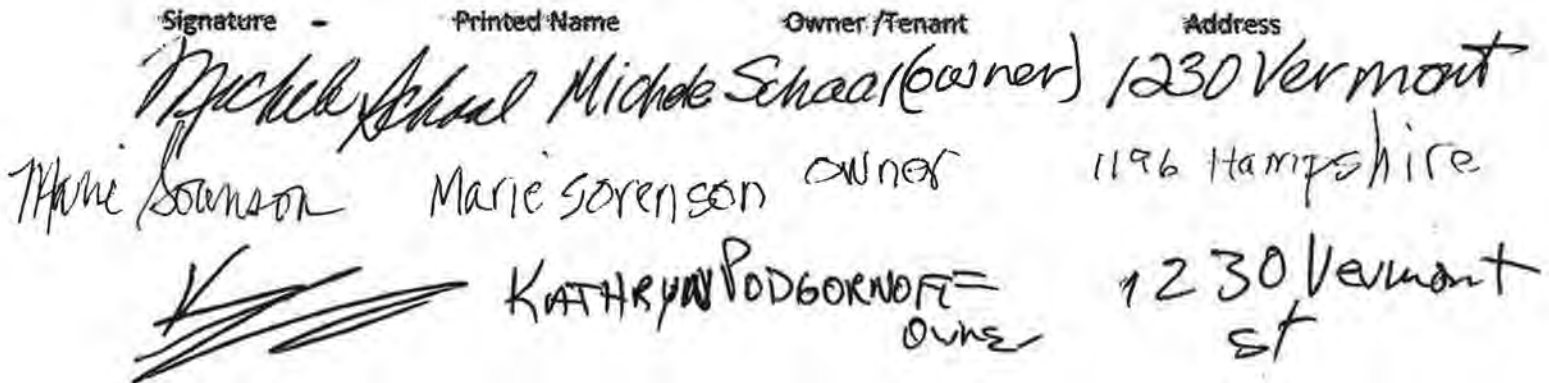 Signature - Printed Name Owner/Tenant Address
Michele Schaal Michele Schaal (owner) 1230 Vermont
Marie Sorenson Marie Sorenson owner 1196 Hampshire
K KATHRYN PODGORNOFF 1230 Vermont
owner st